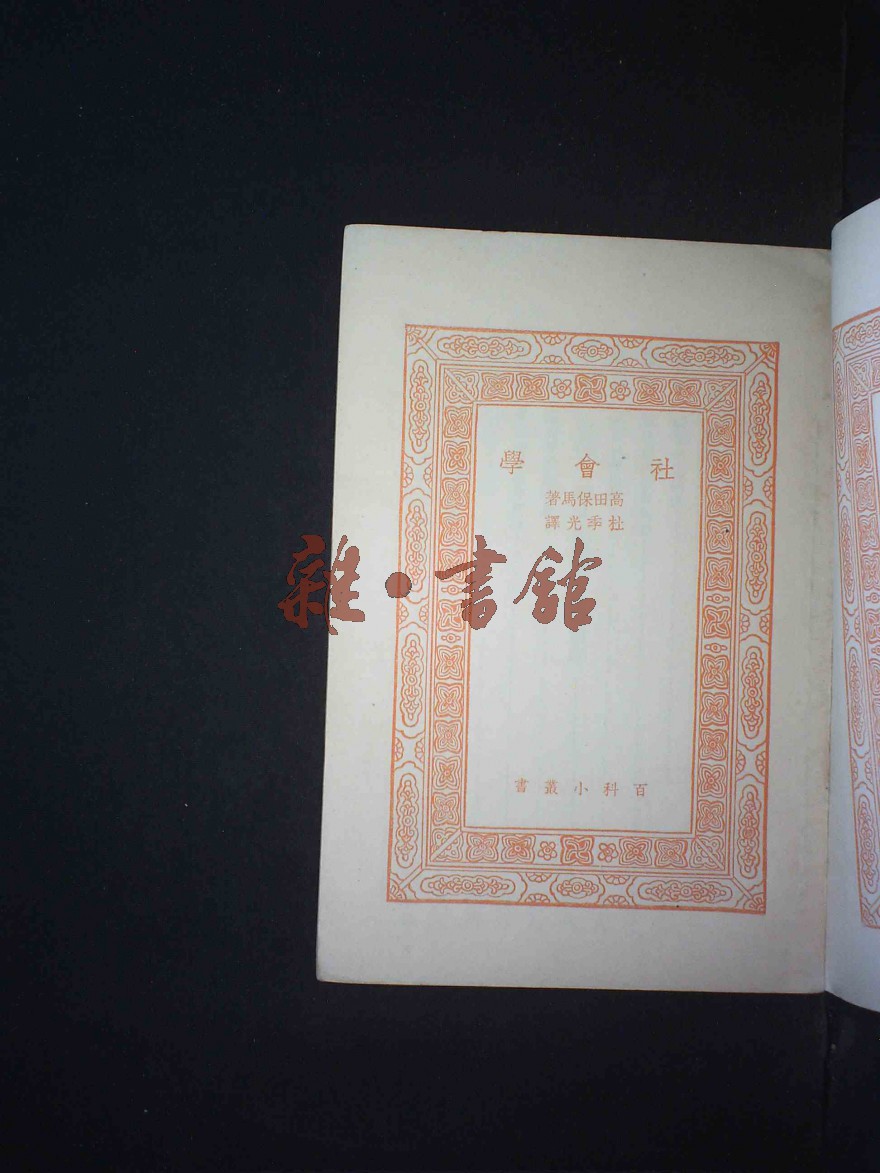 社會學
高田保馬著
杜季光譯
雜·書館
百科小叢書